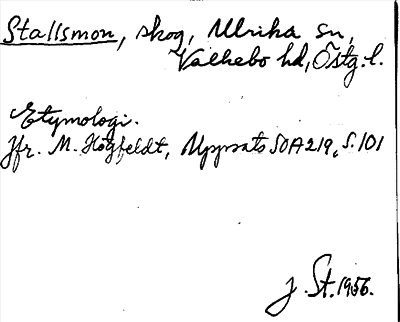 Stallsmon, skog, Ulrika sn,
Valkebo hd, Östg. l.
Etymologi.
Jfr. M. Högfeldt, Uppsats SOA 219, s. 101
J. St. 1956.